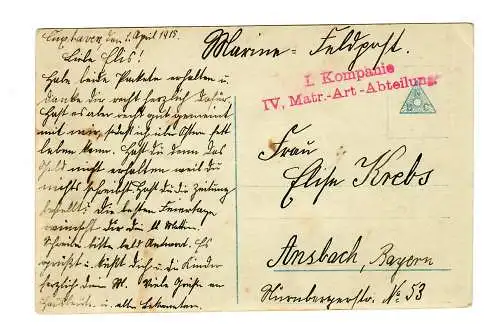 Cuxhaven, den 1. April 1915.
Liebe Elis!
Habe beide Pakete erhalten u.
danke dir recht herzlich dafür,
hast es aber recht gut gemeint
mit mir, jetzt kann ich über Ostern fett
leben. Hast du denn das
Geld nicht erhalten weil du
nichts schreibst. Hast du die Zeitung
bestellt? Die besten Feiertage
wünscht dir
Schreibe bitte bald Antwort. Es
grüßt u. küßt dich u. die Kinder
herzlich dein M. Viele Grüße an
u. alle Bekannten.
Marine-Feldpost.
I. Kompanie
IV, Matr.-Art.-Abteilung
Frau
Elise Krebs
Ansbach, Bayern
Nürnbergerstr. No 53